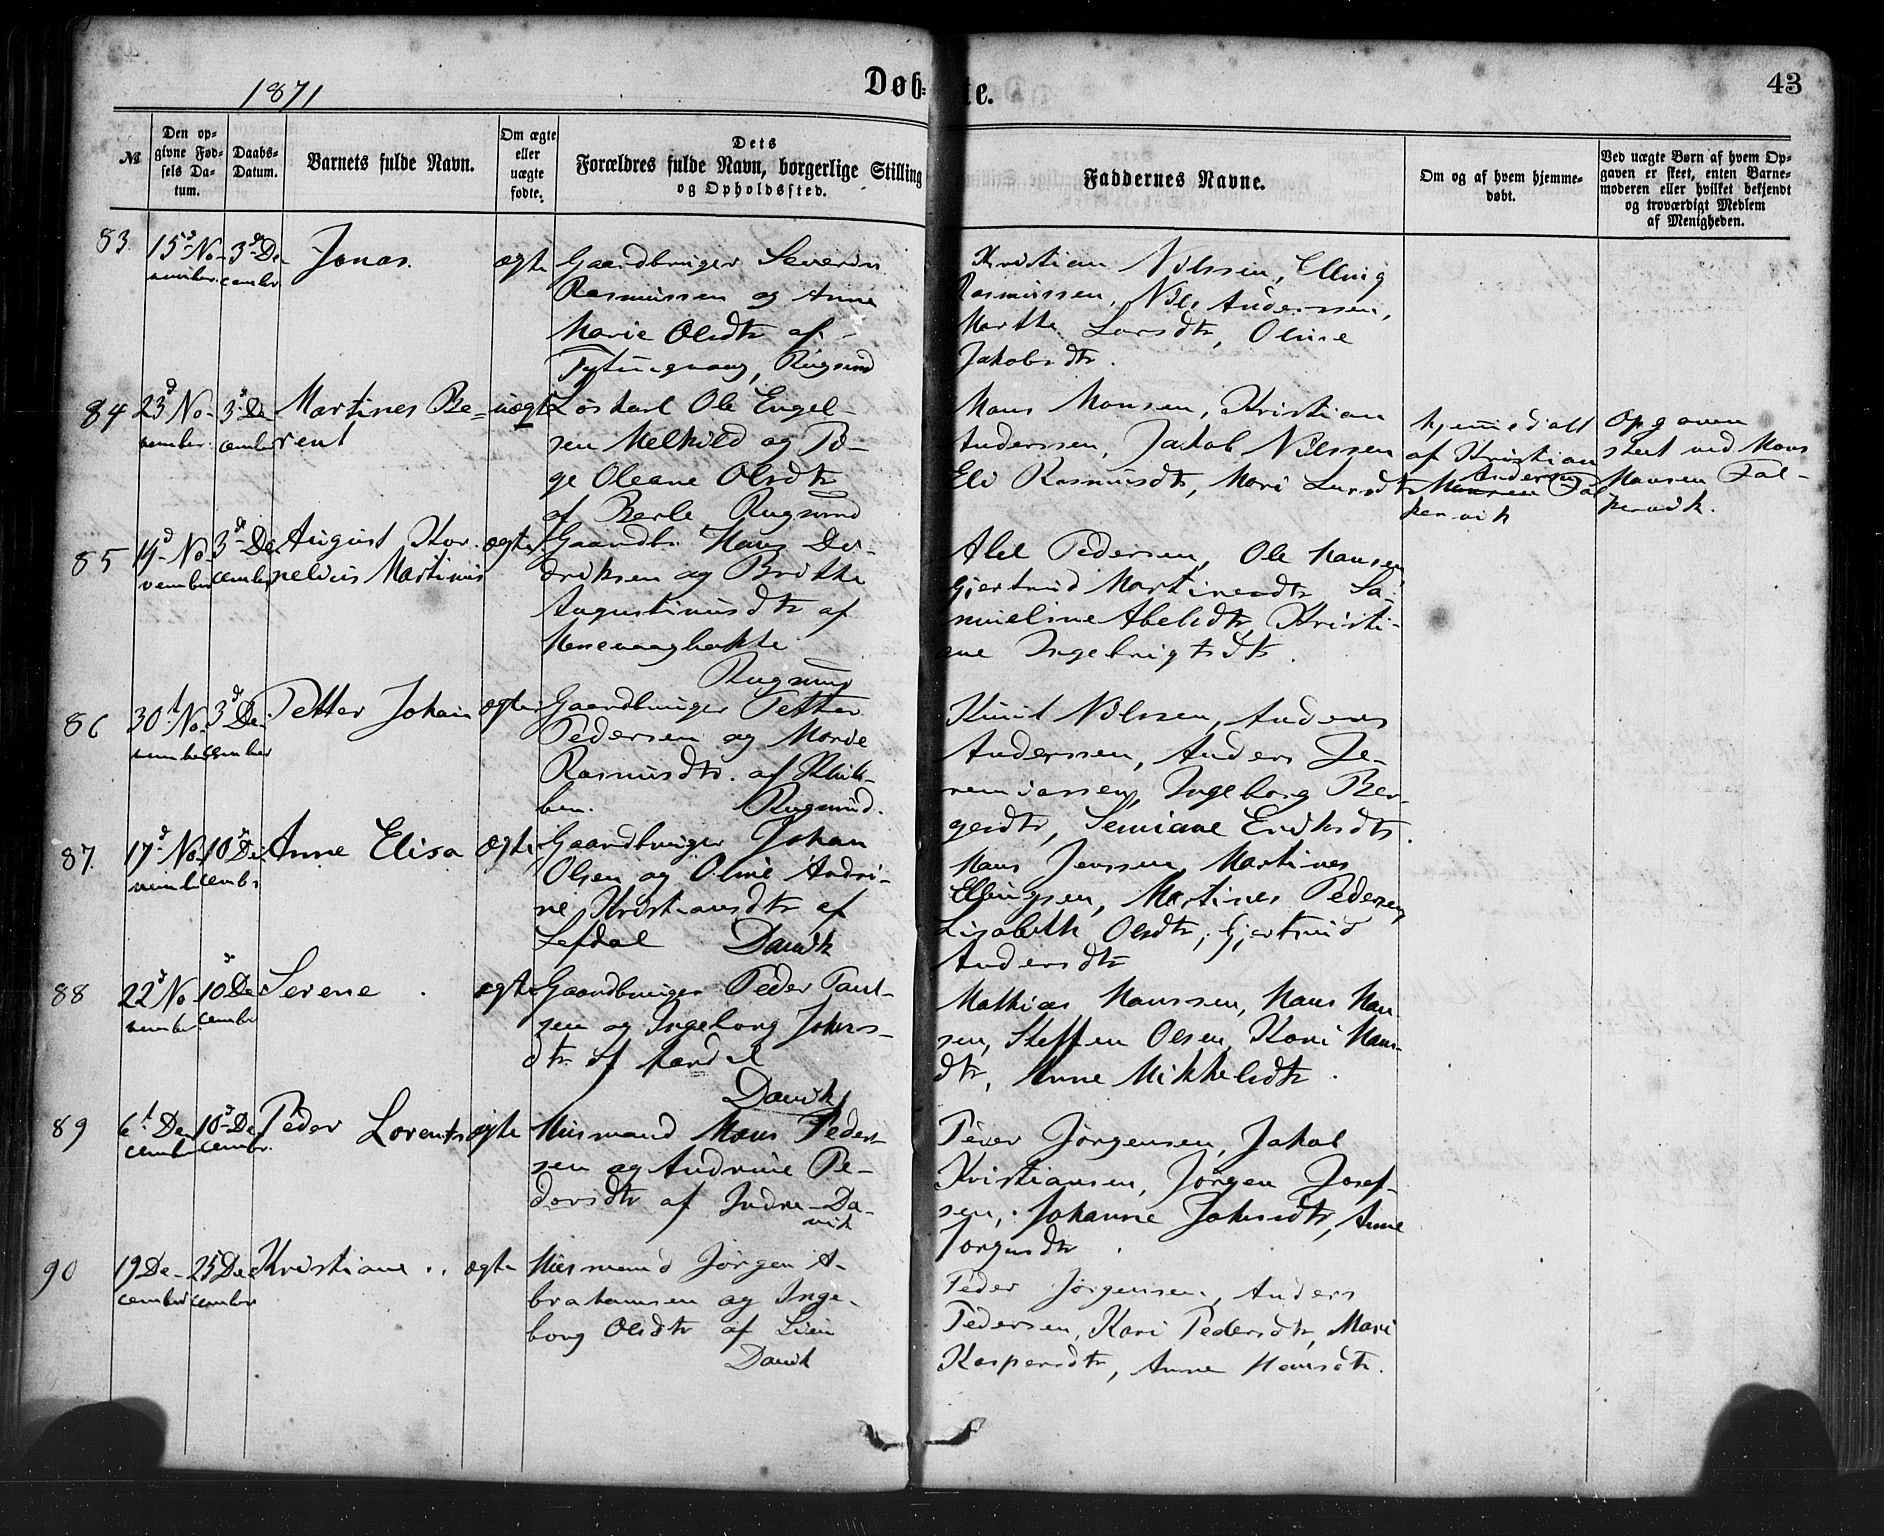 1871
Døbte.
43
№
Den opgivne Fødsels Datum.
Daabs-Datum.
Barnets fulde Navn.
Om ægte eller uægte fødte.
Dets Forældres fulde Navn, borgerlige Stilling og Opholdssted.
Faddernes Navne.
Om og af hvem hjemmedøbt.
Ved uægte Børn af hvem Opgaven er skeet, enten Barnemoderen eller hvilket bekjendt og troværdigt Medlem af Menigheden.
83.
15d No-
vember
3d De-
cember
Jonas.
ægte
Gaardbruger Severin
Rasmussen og Anne
Marie Olsdtr af
Rugsund
Kristian Nilssen, Elling
Rasmussen, Nils Anderssen,
Marthe Larsdtr, Oline
Jakobsdtr.
84
23d No-
vember.
3d De
cember
Martines Be-
rent
uægte
Løskarl Ole Engel-
sen Melkild og Pi-
ge Oleane Olsdtr
af Berle Rugsund
Mons Monsen, Kristian
Anderssen, Jakob Nilssen
Eli Rasmusdtr, Mari Larsdtr
hjemmedøbt
af Kristian
Andersen
Monsen Fal
kenvik
Opgaven
skeet ved Mons
Monsen Fal-
kenvik.
85
14d No
vember
3d De
cember
August Kor-
nelius Martinus
ægte
Gaardbr. Hans Di-
driksen og Brithe
Augustinusdtr af
Rugsund
Abel Pedersen, Ole Hansen
Gjertrud Martinesdtr Sa-
mueline Abelsdtr Kristi-
ane Ingebrigtsdtr.
86
30t No-
vember
3d De
cember
Petter Johan
ægte
Gaardbruger Petter
Pedersen og Marie
Rasmusdtr. af
Rugsund.
Knut Nilssen, Anders
Anderssen, Anders Je-
remiassen, Ingeborg Ber-
gesdtr, Semiane Eriksdtr.
87.
17d No
vember
10d De
cembr
Anne Elisa
ægte
Gaardbruger Johan
Olsen og Oline Andri-
ne Kristiansdtr af
Lefdal Davik
Hans Jenssen, Martines
Ellingsen, Martines Pedersen,
Lisabeth Olsdtr, Gjertrud
Andersdtr
88
22d No
vember
10d De
cember
Serene
ægte
Gaardbruger Peder Paul-
sen og Ingeborg Johns-
dtr af
Davik
Mathias Hanssen, Hans Han
sen, Steffen Olsen, Kari Hans-
dtr, Anne Mikkelsdtr.
89
6t De
cember
10d De
cembr.
Peder Lorents
ægte
Husmand Mons Peder-
sen og Andrine Pe-
dersdtr af Indre-Da-
vik
Peder Jørgensen, Jakob
Kristiansen, Jørgen Josef-
sen, Johanne Johnsdtr, Anne
Jørgensdtr.
90
19 De-
cember
25 De
cember
Kristiane
ægte
Husmand Jørgen A-
brahamsen og Inge-
borg Olsdtr af Lien
Davik
Peder Jørgensen, Anders
Pedersen, Kari Pedersdtr, Mari
Kaspersdtr, Anne Hansdtr.